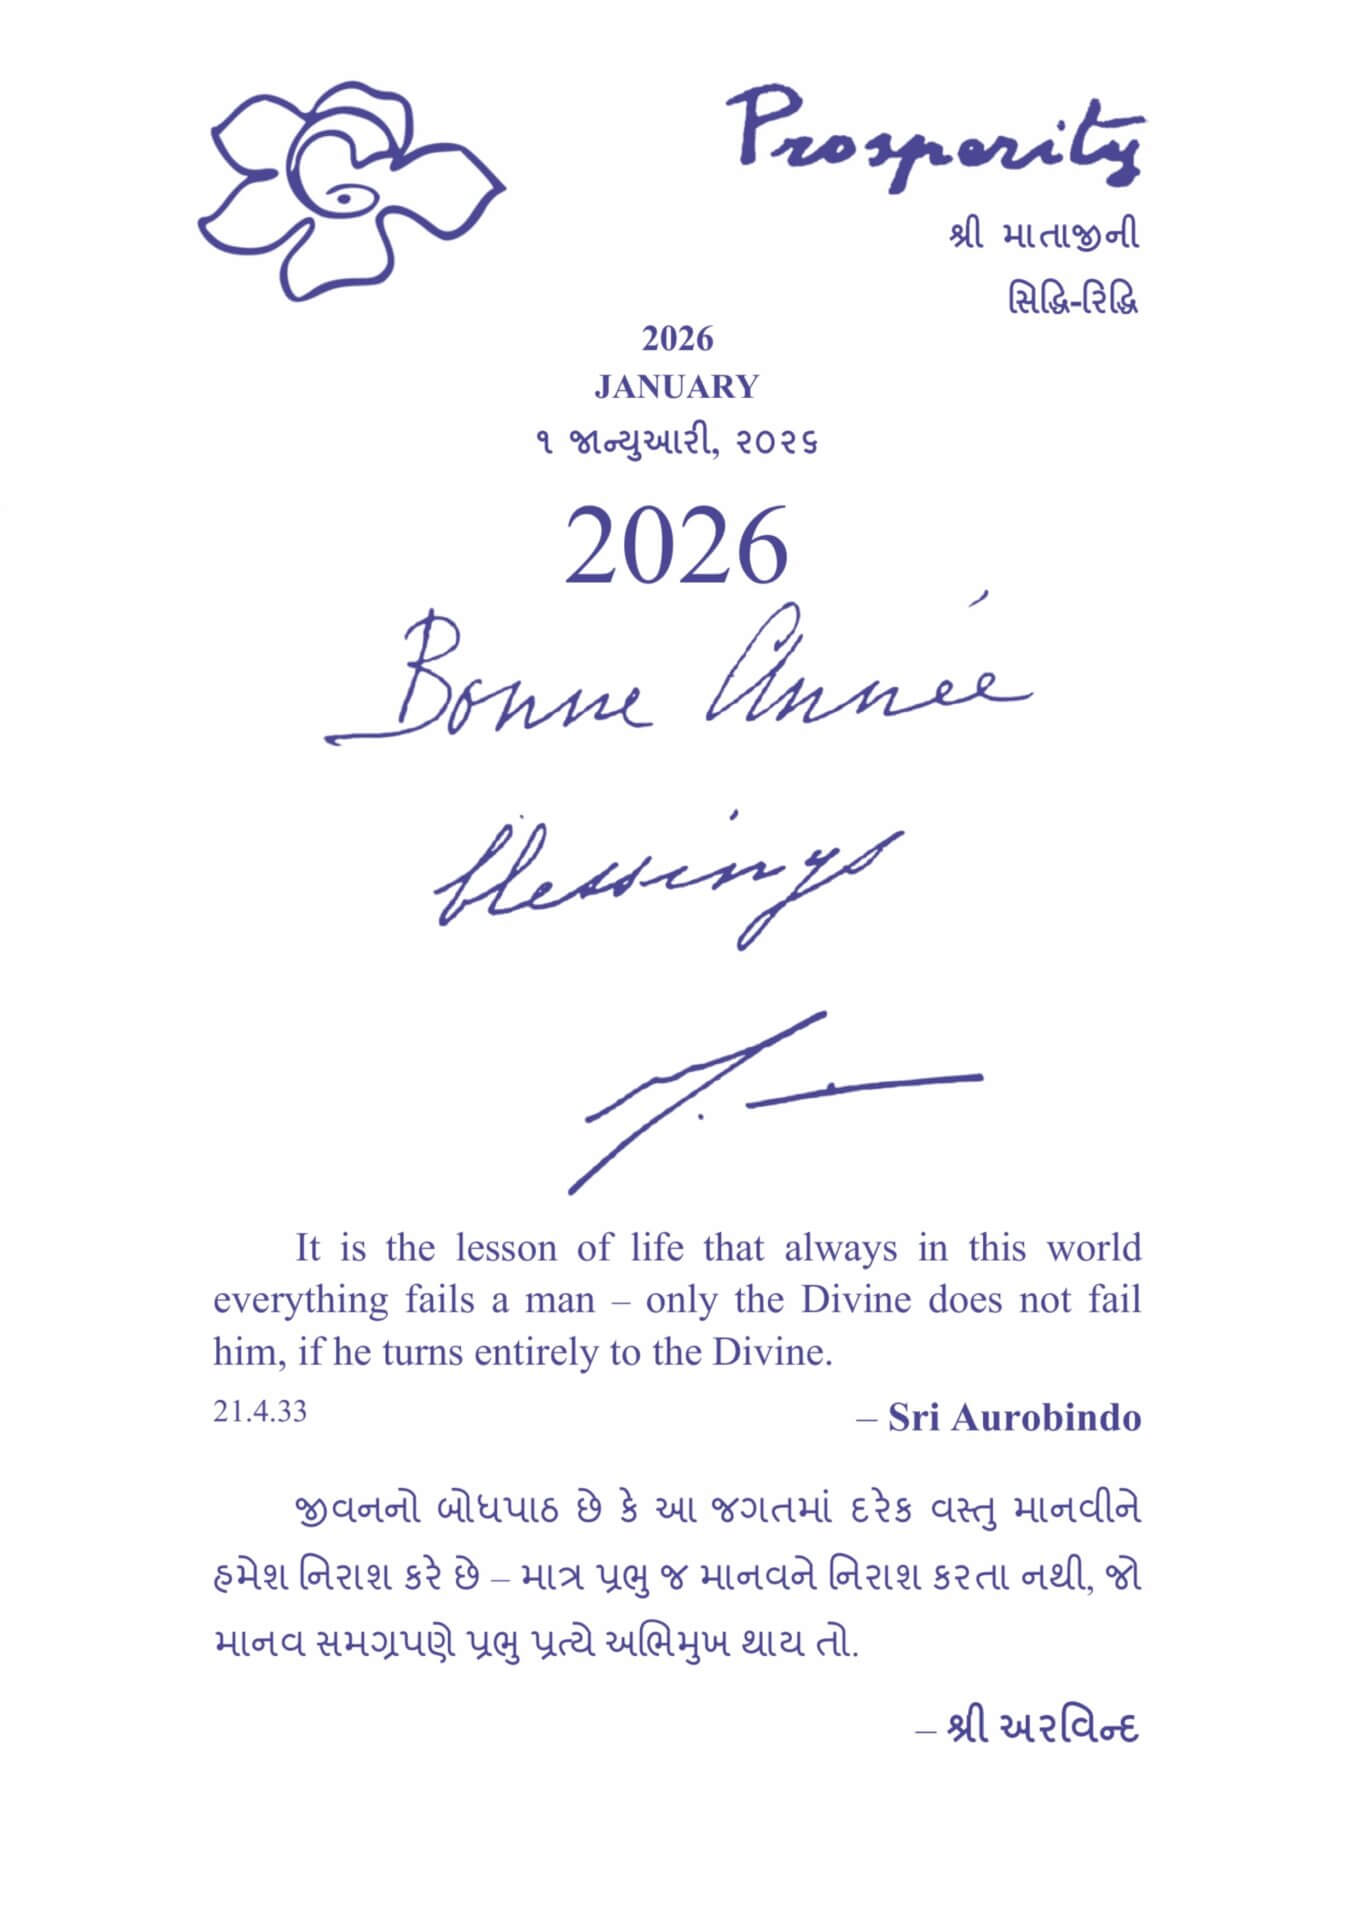 Prosperity
શ્રી માતાજીની
સિદ્ધિ-રિદ્ધિ
2026
JANUARY
૧ જાન્યુઆરી, ૨૦૨૬
2026
Bonne Année
blessings
It is the lesson of life that always in this world
everything fails a man – only the Divine does not fail
him, if he turns entirely to the Divine.
21.4.33 – Sri Aurobindo
જીવનનો બોધપાઠ છે કે આ જગતમાં દરેક વસ્તુ માનવીને
હમેશ નિરાશ કરે છે – માત્ર પ્રભુ જ માનવને નિરાશ કરતા નથી, જો
માનવ સમગ્રપણે પ્રભુ પ્રત્યે અભિમુખ થાય તો.
– શ્રી અરવિન્દ